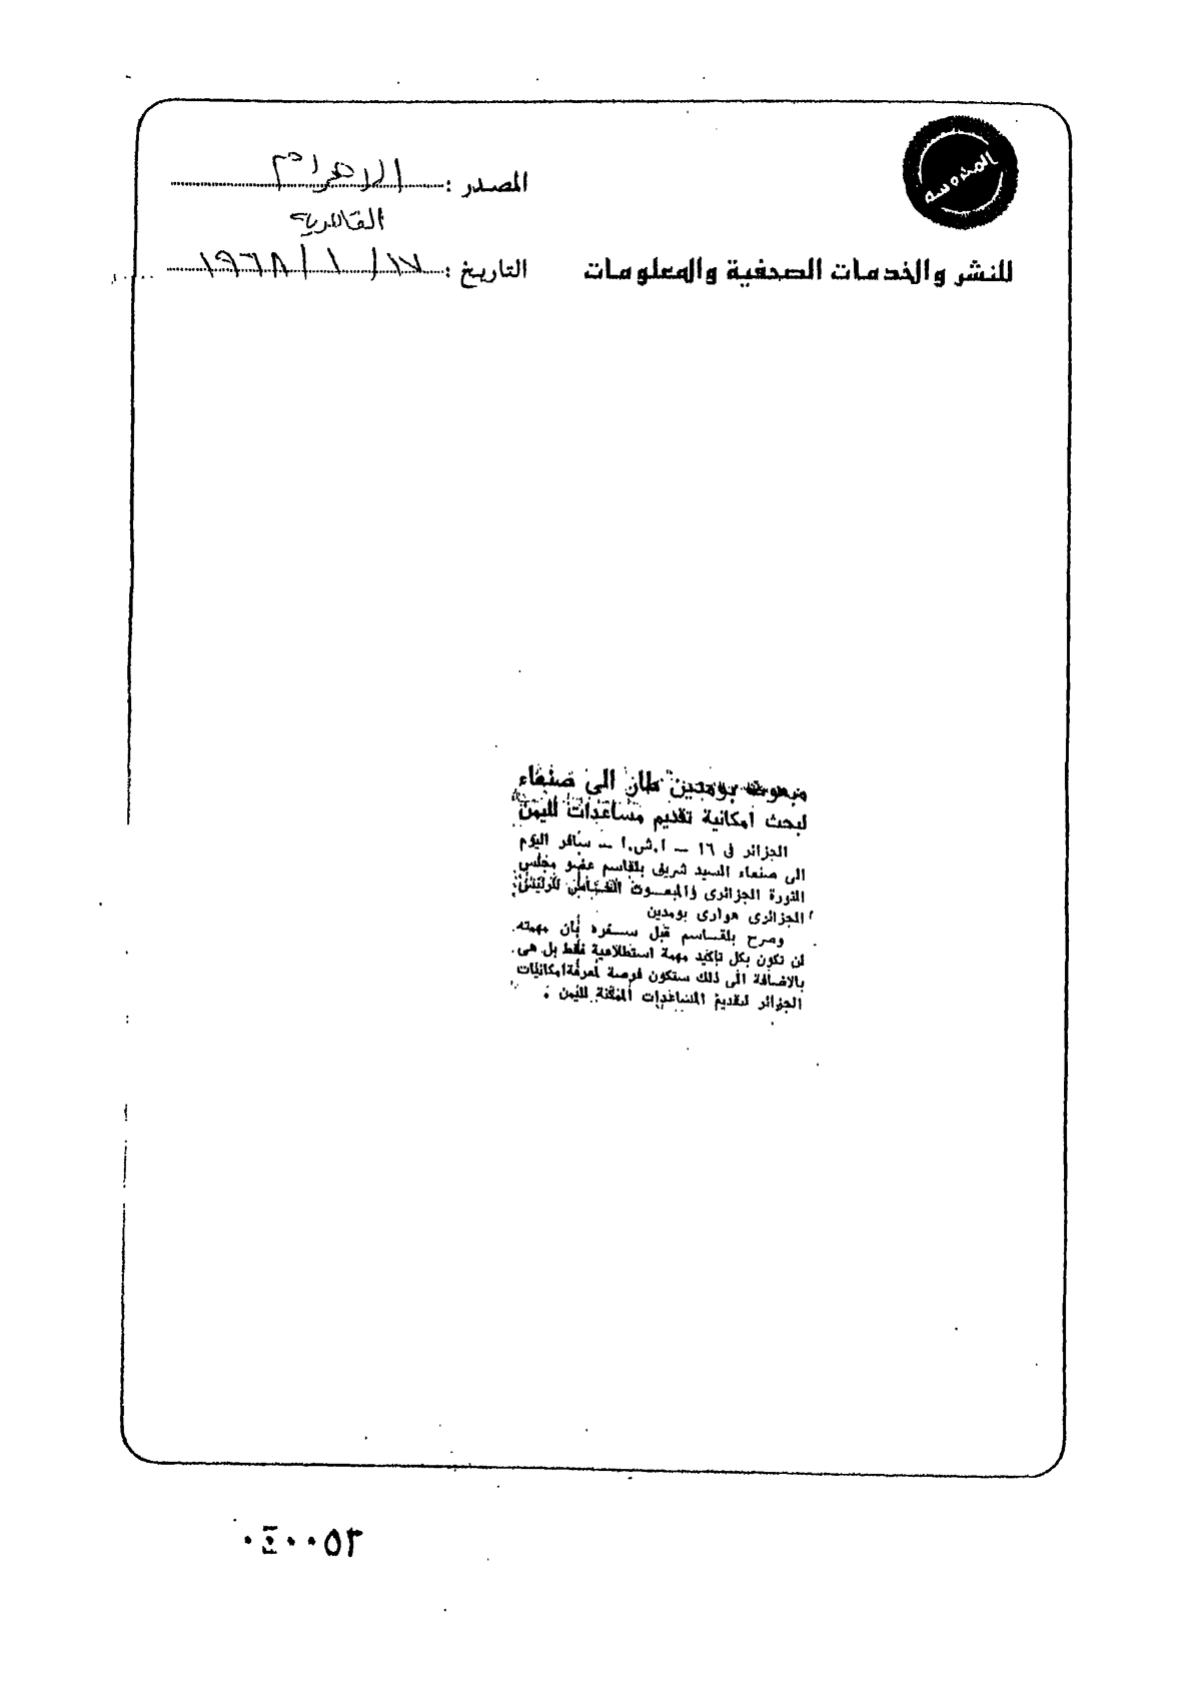 المحروسة
المصدر : الاهرام
القاهرية
للنشر والخدمات الصحفية والمعلومات
التاريخ : ١٧ / ١ / ١٩٦٨
مبعوث بومدين طار الى صنعاء
لبحث امكانية تقديم مساعدات لليمن
الجزائر فى ١٦ — ا.ش.ا — سافر اليوم
الى صنعاء السيد شريف بلقاسم عضو مجلس
الثورة الجزائرى والمبعوث الخاص للرئيس
الجزائرى هوارى بومدين
وصرح بلقاسم قبل سفره بأن مهمته
لن تكون بكل تاكيد مهمة استطلاعية فقط بل هى
بالاضافة الى ذلك ستكون فرصة لمعرفة امكانيات
الجزائر لتقديم المساعدات الممكنة لليمن .
٠٤٠٠٥٣